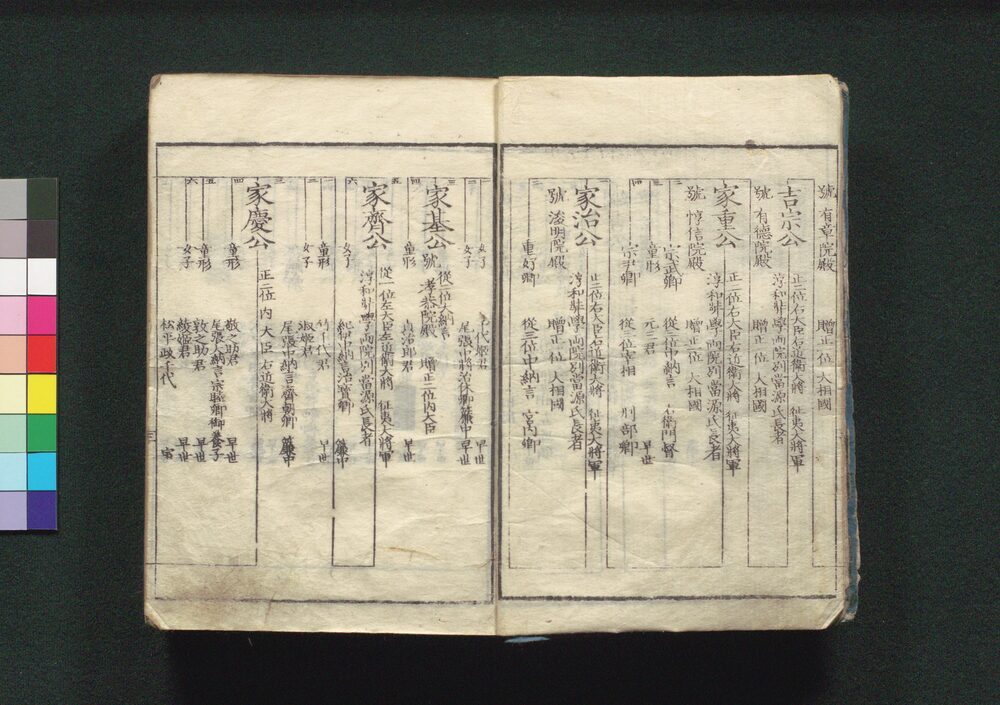 號 有章院殿 贈正一位 大相國
吉宗公
正二位右大臣右近衛大將 征夷大將軍
淳和奬學両院別當源氏長者
號 有德院殿 贈正一位 大相國
家重公
正二位右大臣右近衛大將 征夷大將軍
淳和奬學両院別當源氏長者
號 惇信院殿 贈正一位 大相國
二
宗武卿 從二位中納言 右衛門督
三
童形 元三君 早世
四
宗尹卿 從二位宰相 刑部卿
家治公
正二位右大臣右近衛大將 征夷大將軍
淳和奬學両院別當源氏長者
號 浚明院殿 贈正一位 大相國
二
重好卿 從三位中納言 宮内卿
女子 千代姫君 早世
二
女子 尾張中將治休卿簾中 早世
三
家基公
從二位大納言
號 孝恭院殿 贈正二位内大臣
四
童形 貞治郎君 早世
五
家齊公
從一位左大臣左近衛大將 征夷大將軍
淳和奬學両院別當源氏長者
六
女子 紀伊中納言治寳卿 簾中
童形 竹千代君 早世
二
女子 淑姫君
尾張中納言齊朝卿 簾中
三
家慶公
正二位内大臣 右近衛大將
四
童形 敬之助君 早世
尾張大納言宗睦卿御養子
五
童形 敦之助君 早世
六
女子 綾姫君
松平政千代 室
三